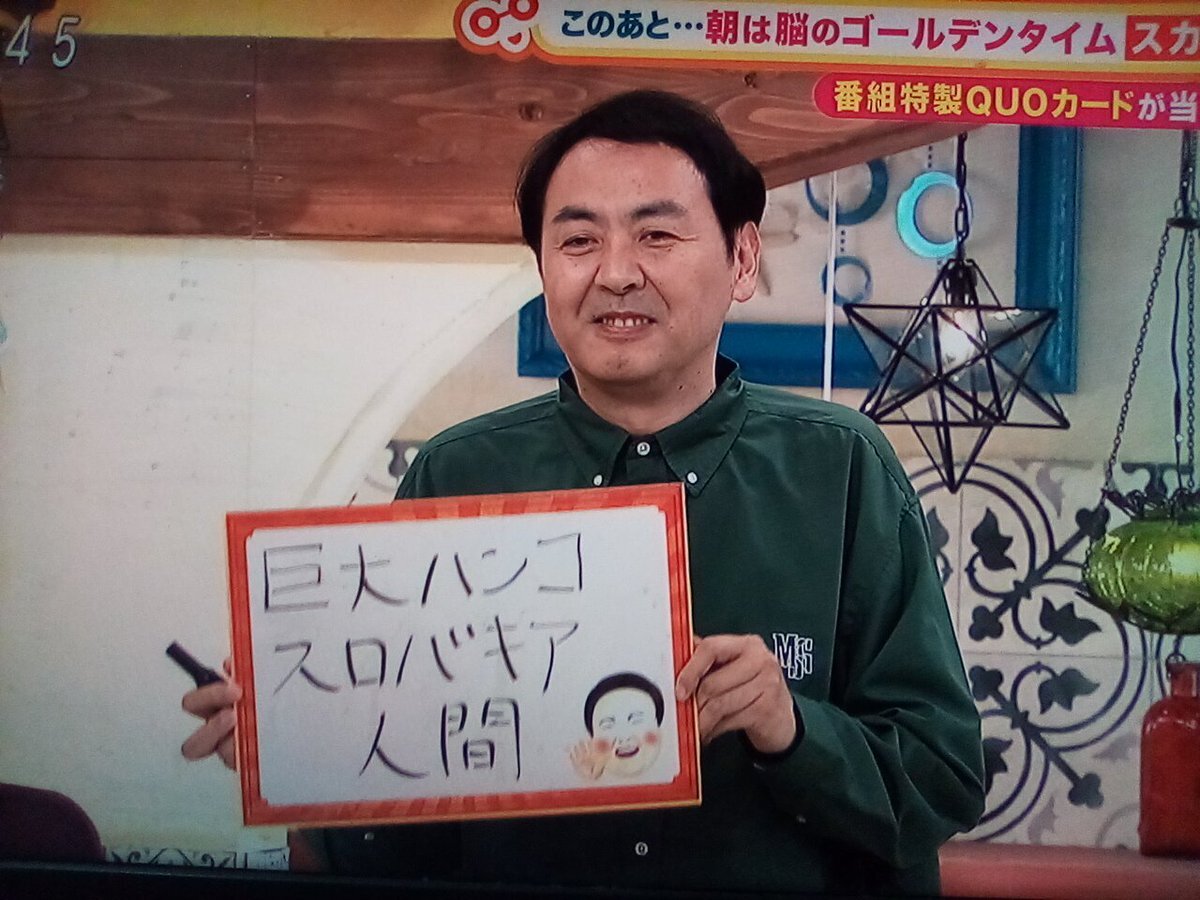 45
このあと…朝は脳のゴールデンタイム スカ
番組特製QUOカードが当
巨大ハンコ
スロバキア
人間